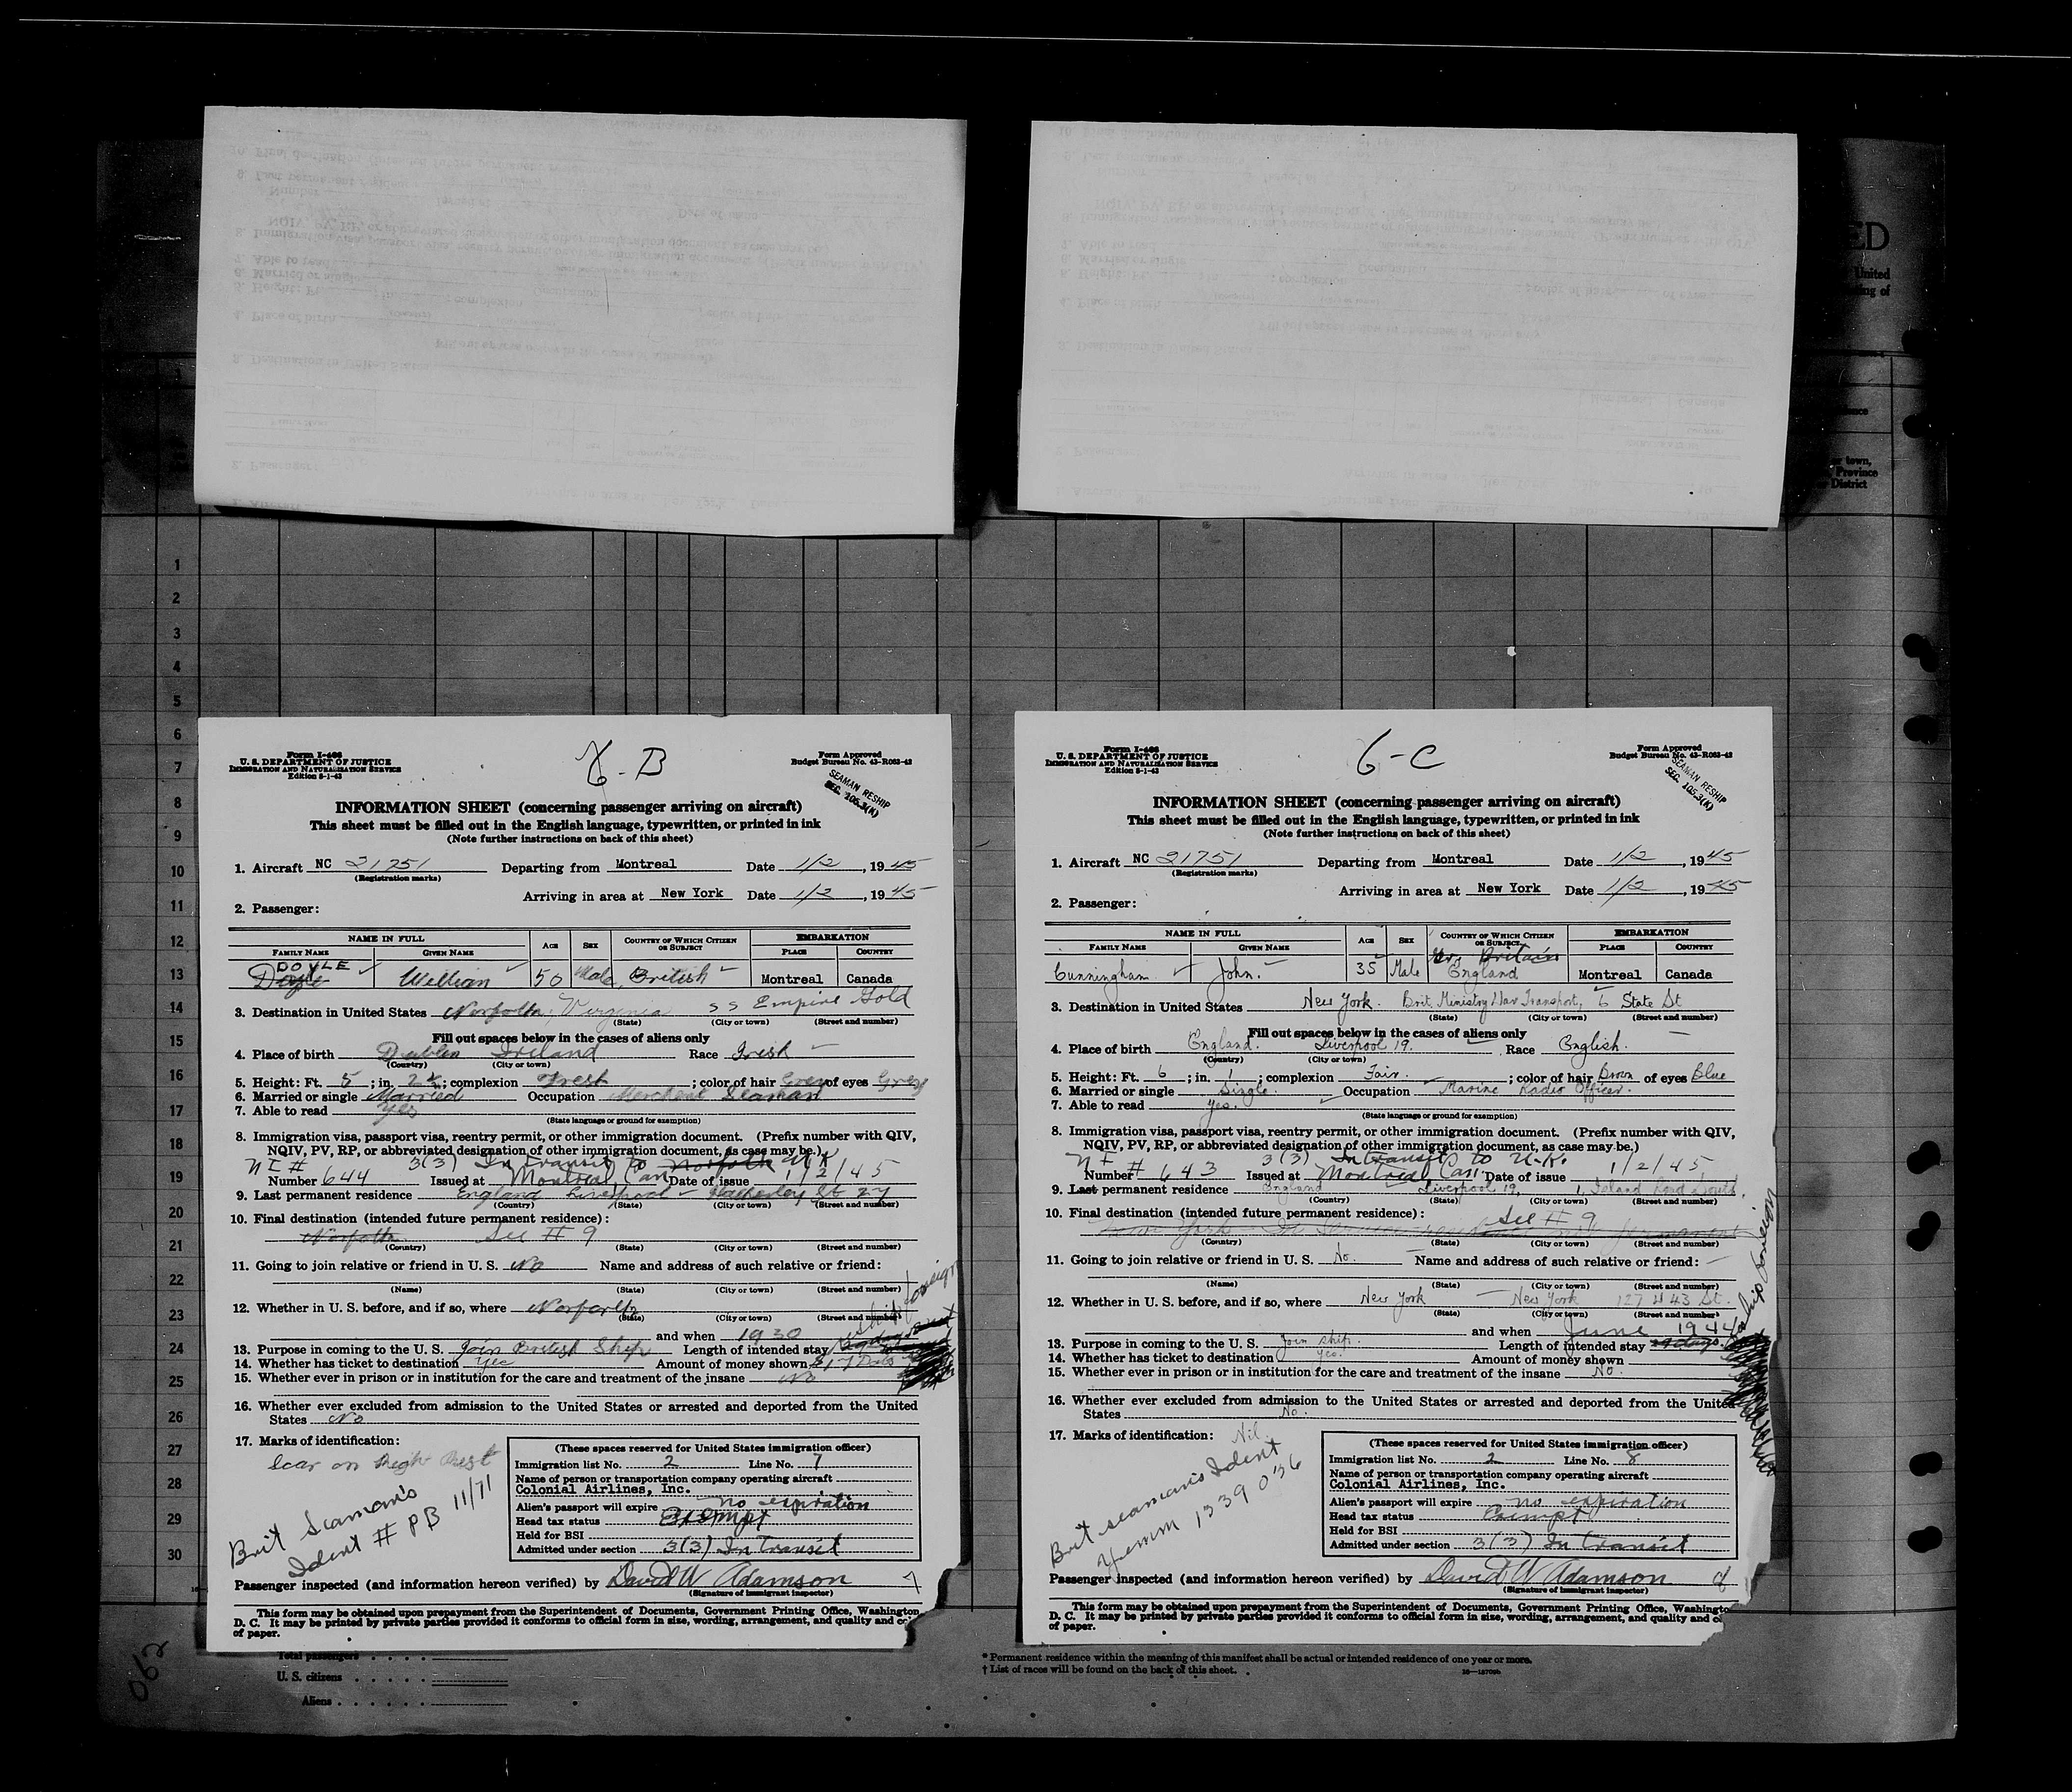 ED
United
ing of
ence
or town,
Province
or District
1
2
3
4
5
6
7
8
9
10
11
12
13
14
15
16
17
18
19
20
21
22
23
24
25
26
27
28
29
30
Form I-466
U. S. DEPARTMENT OF JUSTICE
IMMIGRATION AND NATURALIZATION SERVICE
Edition 5-1-43
6-B
Form Approved
Budget Bureau No. 43-R063-42
SEAMAN RESHIP
SEC. 105.3(K)
INFORMATION SHEET (concerning passenger arriving on aircraft)
This sheet must be filled out in the English language, typewritten, or printed in ink
(Note further instructions on back of this sheet)
1. Aircraft NC 21751 Departing from Montreal Date 1/2, 1945
(Registration marks)
Arriving in area at New York Date 1/2, 1945
2. Passenger:
NAME IN FULL AGE SEX COUNTRY OF WHICH CITIZEN OR SUBJECT EMBARKATION
FAMILY NAME GIVEN NAME PLACE COUNTRY
DOYLE
Doyle William 50 Male British Montreal Canada
3. Destination in United States Norfolk, Virginia SS Empire Gold
(State) (City or town) (Street and number)
Fill out spaces below in the cases of aliens only
4. Place of birth Dublin Ireland Race Irish
(Country) (City or town)
5. Height: Ft. 5; in. 2½; complexion Fresh; color of hair Grey of eyes Grey
6. Married or single Married Occupation Merchant Seaman
7. Able to read Yes
(State language or ground for exemption)
8. Immigration visa, passport visa, reentry permit, or other immigration document. (Prefix number with QIV,
NQIV, PV, RP, or abbreviated designation of other immigration document, as case may be.)
3(3) In transit to Norfolk UK
Number 644 Issued at Montreal, Can Date of issue 1/2/45
9. Last permanent residence England Liverpool St 27
(Country) (State) (City or town) (Street and number)
10. Final destination (intended future permanent residence):
Norfolk See # 9
(Country) (State) (City or town) (Street and number)
11. Going to join relative or friend in U. S. No Name and address of such relative or friend:
(Name) (State) (City or town) (Street and number)
12. Whether in U. S. before, and if so, where Norfolk
(State) (City or town) (Street and number)
and when 1930
13. Purpose in coming to the U. S. Join British Ship Length of intended stay
14. Whether has ticket to destination Yes Amount of money shown
15. Whether ever in prison or in institution for the care and treatment of the insane No
16. Whether ever excluded from admission to the United States or arrested and deported from the United
States No
17. Marks of identification:
Scar on Right
Brit Seaman's
Ident # PB 11/71
(These spaces reserved for United States immigration officer)
Immigration list No. 2 Line No. 7
Name of person or transportation company operating aircraft
Colonial Airlines, Inc.
Alien's passport will expire no expiration
Head tax status Exempt
Held for BSI
Admitted under section 3(3) In Transit
Passenger inspected (and information hereon verified) by David W Adamson 7
(Signature of immigrant inspector)
This form may be obtained upon prepayment from the Superintendent of Documents, Government Printing Office, Washington
D. C. It may be printed by private parties provided it conforms to official form in size, wording, arrangement, and quality and
of paper.
Form I-466
U. S. DEPARTMENT OF JUSTICE
IMMIGRATION AND NATURALIZATION SERVICE
Edition 5-1-43
6-C
Form Approved
Budget Bureau No. 43-R063-42
SEAMAN RESHIP
SEC. 105.3(K)
INFORMATION SHEET (concerning passenger arriving on aircraft)
This sheet must be filled out in the English language, typewritten, or printed in ink
(Note further instructions on back of this sheet)
1. Aircraft NC 21751 Departing from Montreal Date 1/2, 1945
(Registration marks)
Arriving in area at New York Date 1/2, 1945
2. Passenger:
NAME IN FULL AGE SEX COUNTRY OF WHICH CITIZEN OR SUBJECT EMBARKATION
FAMILY NAME GIVEN NAME PLACE COUNTRY
Gr. Britain
Cunningham John. 35 Male England Montreal Canada
3. Destination in United States New York. Brit. Ministry War Transport, 6 State St
(State) (City or town) (Street and number)
Fill out spaces below in the cases of aliens only
4. Place of birth England. Liverpool 19. Race English.
(Country) (City or town)
5. Height: Ft. 6; in. 1; complexion Fair.; color of hair Brown of eyes Blue
6. Married or single Single. Occupation Marine Radio Officer.
7. Able to read Yes.
(State language or ground for exemption)
8. Immigration visa, passport visa, reentry permit, or other immigration document. (Prefix number with QIV,
NQIV, PV, RP, or abbreviated designation of other immigration document, as case may be.)
3(3) In transit to U.K.
Number 643 Issued at Montreal, Can. Date of issue 1/2/45
9. Last permanent residence England Liverpool 19, 1, Island Road South.
(Country) (State) (City or town) (Street and number)
10. Final destination (intended future permanent residence):
See # 9
(Country) (State) (City or town) (Street and number)
11. Going to join relative or friend in U. S. No. Name and address of such relative or friend:
(Name) (State) (City or town) (Street and number)
12. Whether in U. S. before, and if so, where New York New York 127 W 43 St.
(State) (City or town) (Street and number)
and when June 1944
13. Purpose in coming to the U. S. Join ship. Length of intended stay
14. Whether has ticket to destination Yes. Amount of money shown
15. Whether ever in prison or in institution for the care and treatment of the insane No.
16. Whether ever excluded from admission to the United States or arrested and deported from the United
States No.
17. Marks of identification: Nil.
Brit seaman's Ident
(These spaces reserved for United States immigration officer)
Immigration list No. 2 Line No. 8
Name of person or transportation company operating aircraft
Colonial Airlines, Inc.
Alien's passport will expire no expiration
Head tax status Exempt
Held for BSI
Admitted under section 3(3) In Transit
Passenger inspected (and information hereon verified) by David W Adamson 8
(Signature of immigrant inspector)
This form may be obtained upon prepayment from the Superintendent of Documents, Government Printing Office, Washington
D. C. It may be printed by private parties provided it conforms to official form in size, wording, arrangement, and quality and
of paper.
Total passengers
U. S. citizens
Aliens
062
* Permanent residence within the meaning of this manifest shall be actual or intended residence of one year or more.
† List of races will be found on the back of this sheet.